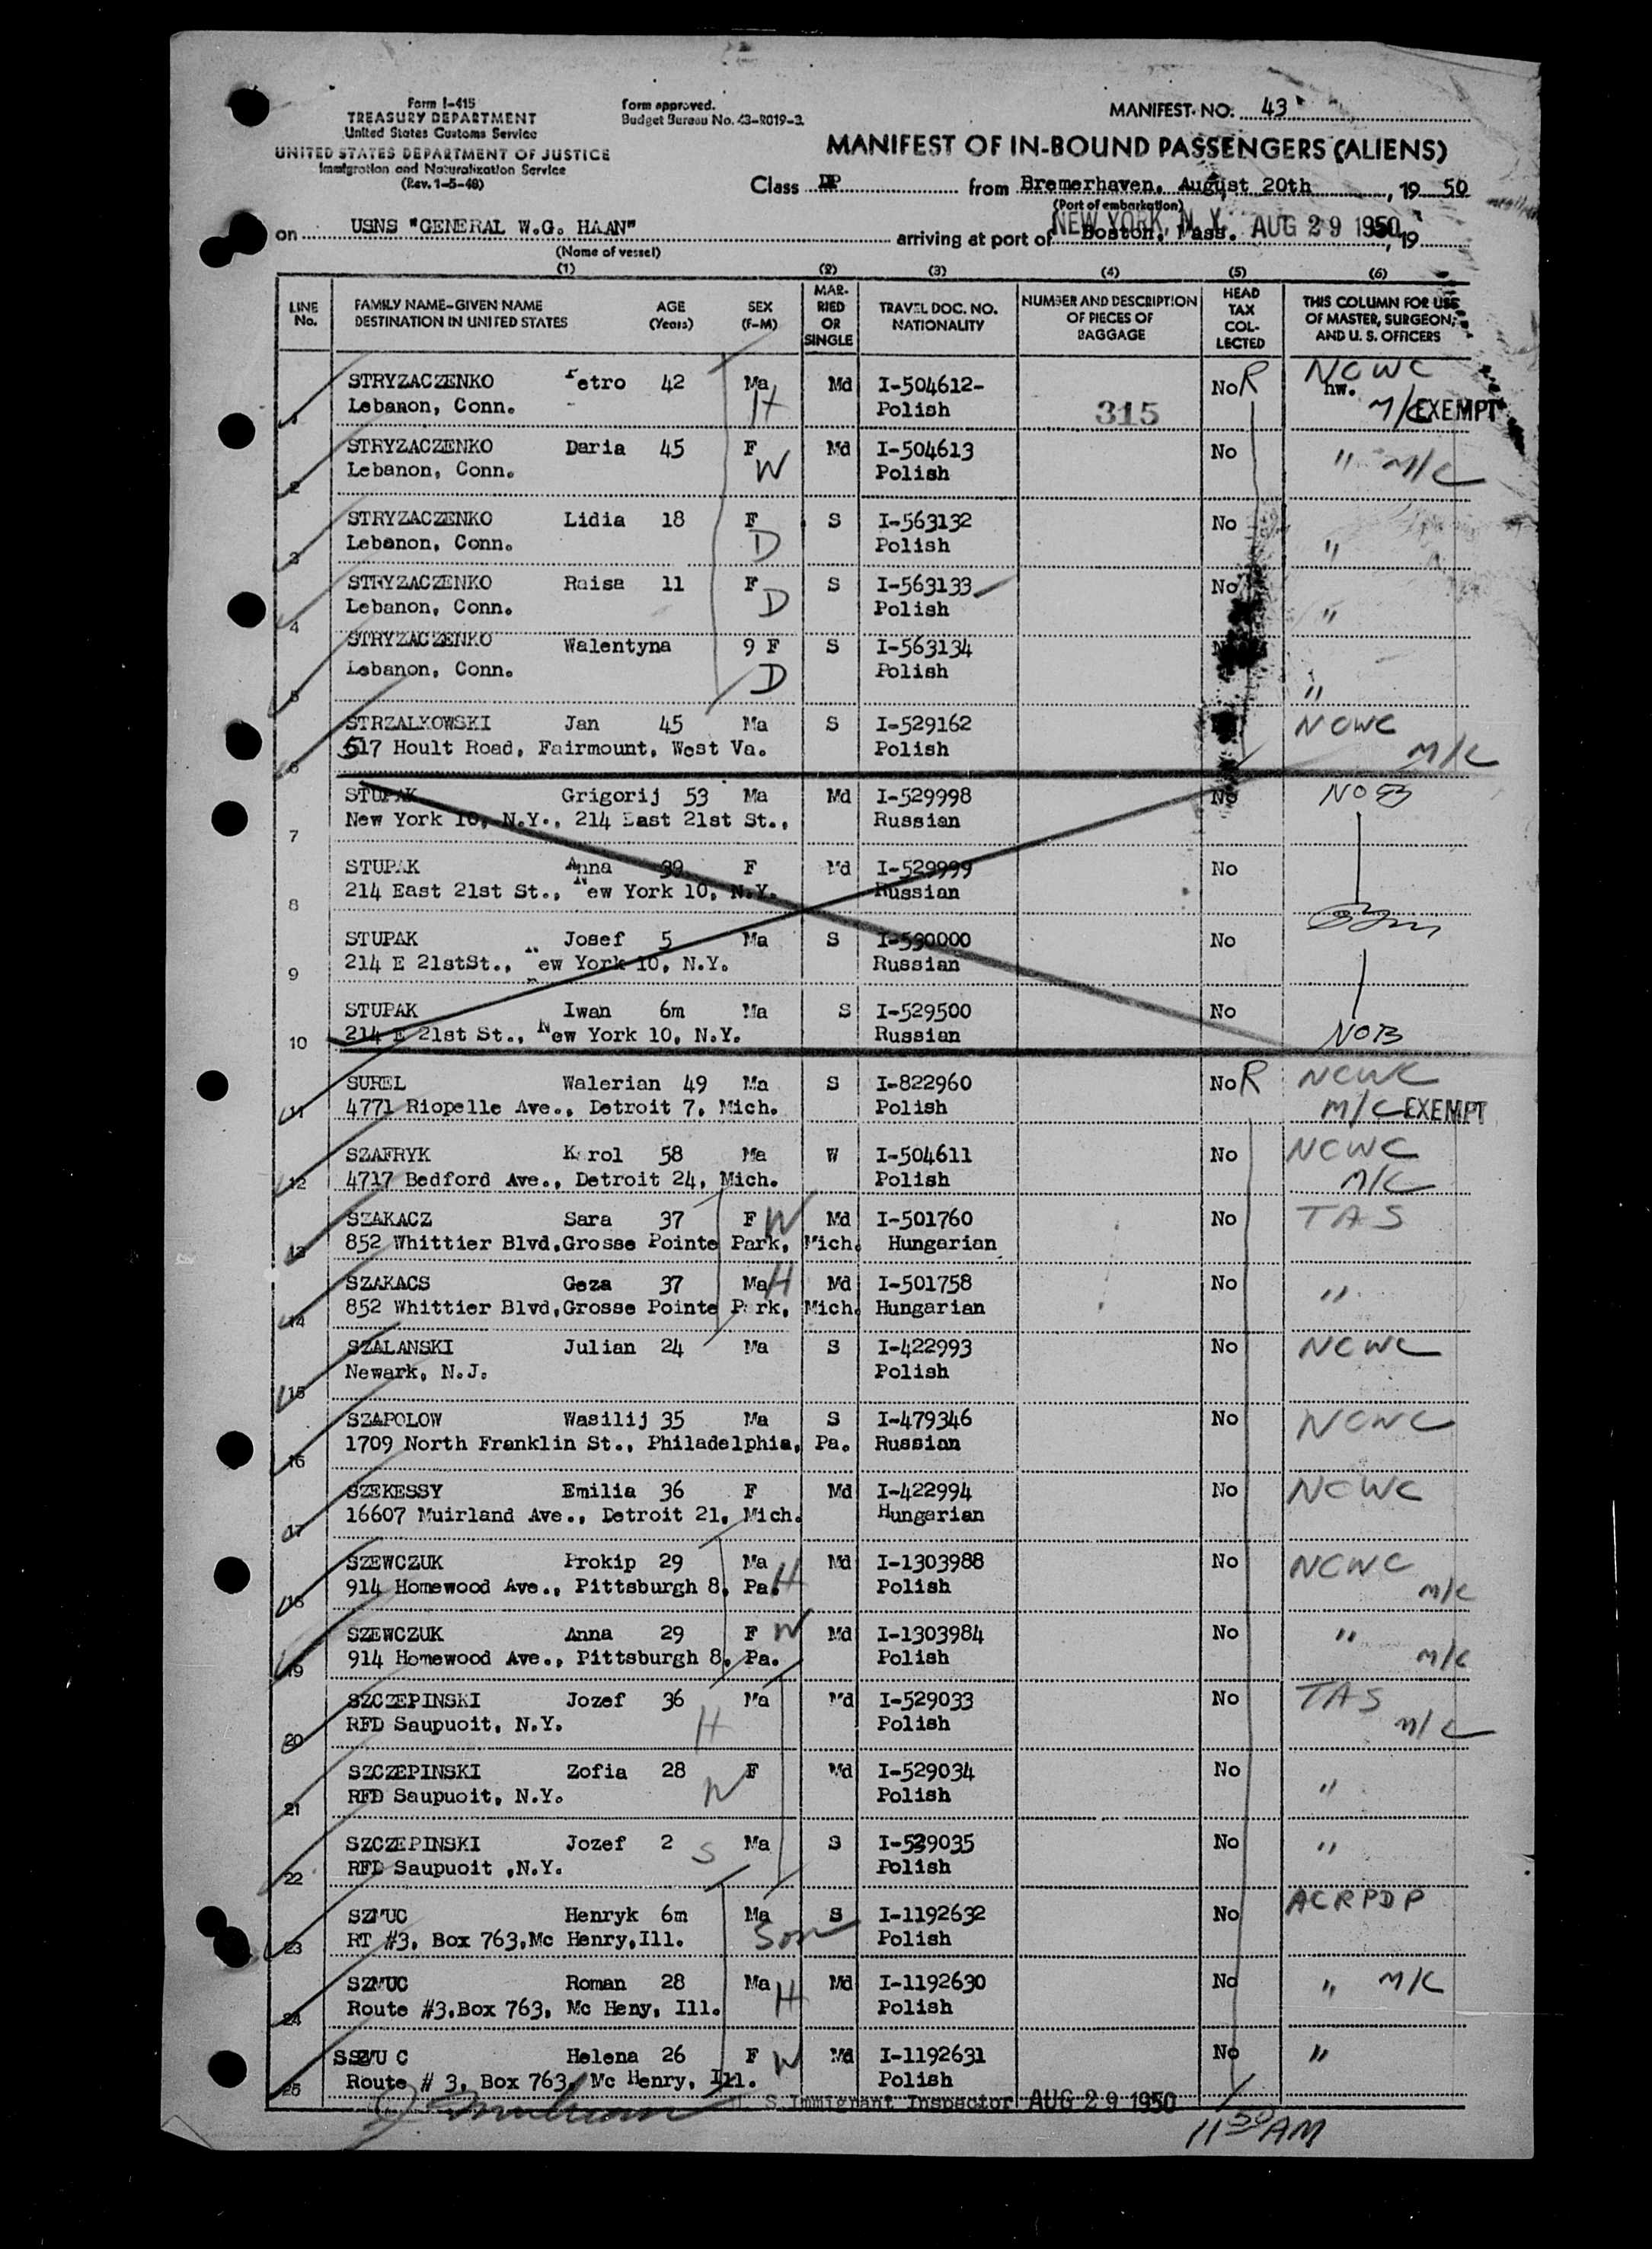 Form I-415
TREASURY DEPARTMENT
United States Customs Service
UNITED STATES DEPARTMENT OF JUSTICE
Immigration and Naturalization Service
(Rev. 1-5-48)
Form approved.
Budget Bureau No. 43-R019-3.
MANIFEST NO. 43
MANIFEST OF IN-BOUND PASSENGERS (ALIENS)
Class DP from Bremerhaven, August 20th, 19 50
(Port of embarkation)
on USNS "GENERAL W.G. HAAN" arriving at port of Boston, Mass. NEW YORK, N.Y. AUG 29 1950, 19
(Name of vessel)
(1) (2) (3) (4) (5) (6)
LINE No. FAMILY NAME-GIVEN NAME DESTINATION IN UNITED STATES AGE (Years) SEX (F-M) MARRIED OR SINGLE TRAVEL DOC. NO. NATIONALITY NUMBER AND DESCRIPTION OF PIECES OF BAGGAGE HEAD TAX COLLECTED THIS COLUMN FOR USE OF MASTER, SURGEON, AND U. S. OFFICERS
STRYZACZENKO Petro 42 Ma Md I-504612- No R NCWC
hw.
1 Lebanon, Conn. H Polish 315 M/C EXEMPT
STRYZACZENKO Daria 45 F Md I-504613 No
2 Lebanon, Conn. W Polish " M/C
STRYZACZENKO Lidia 18 F S I-563132 No
3 Lebanon, Conn. D Polish "
STRYZACZENKO Raisa 11 F S I-563133 No
4 Lebanon, Conn. D Polish "
STRYZACZENKO Walentyna 9 F S I-563134
5 Lebanon, Conn. D Polish "
STRZALKOWSKI Jan 45 Ma S I-529162 NCWC
6 517 Hoult Road, Fairmount, West Va. Polish M/C
STUPAK Grigorij 53 Ma Md I-529998 No NOB
7 New York 10, N.Y., 214 East 21st St., Russian
STUPAK Anna 39 F Md I-529999 No
8 214 East 21st St., New York 10, N.Y. Russian
STUPAK Josef 5 Ma S I-530000 No
9 214 E 21stSt., New York 10, N.Y. Russian
STUPAK Iwan 6m Ma S I-529500 No
10 214 E 21st St., New York 10, N.Y. Russian NOB
SUREL Walerian 49 Ma S I-822960 No R NCWC
11 4771 Riopelle Ave., Detroit 7, Mich. Polish M/C EXEMPT
SZAFRYK Karol 58 Ma W I-504611 No NCWC
12 4717 Bedford Ave., Detroit 24, Mich. Polish M/C
SZAKACZ Sara 37 F W Md I-501760 No TAS
13 852 Whittier Blvd,Grosse Pointe Park, Mich. Hungarian
SZAKACS Geza 37 Ma H Md I-501758 No "
14 852 Whittier Blvd,Grosse Pointe Park, Mich. Hungarian
SZALANSKI Julian 24 Ma S I-422993 No NCWC
15 Newark, N.J. Polish
SZAPOLOW Wasilij 35 Ma S I-479346 No NCWC
16 1709 North Franklin St., Philadelphia, Pa. Russian
SZEKESSY Emilia 36 F Md I-422994 No NCWC
17 16607 Muirland Ave., Detroit 21, Mich. Hungarian
SZEWCZUK Prokip 29 Ma Md I-1303988 No NCWC
18 914 Homewood Ave., Pittsburgh 8, Pa. H Polish M/C
SZEWCZUK Anna 29 F W Md I-1303984 No "
19 914 Homewood Ave., Pittsburgh 8, Pa. Polish M/C
SZCZEPINSKI Jozef 36 Ma Md I-529033 No TAS
20 RFD Saupuoit, N.Y. H Polish M/C
SZCZEPINSKI Zofia 28 F Md I-529034 No
21 RFD Saupuoit, N.Y. W Polish "
SZCZEPINSKI Jozef 2 S Ma S I-529035 No "
22 RFD Saupuoit ,N.Y. Polish
SZMUC Henryk 6m Ma S I-1192632 No ACRPDP
23 RT #3, Box 763,Mc Henry,Ill. Son Polish
SZMUC Roman 28 Ma H Md I-1192630 No " M/C
24 Route #3,Box 763, Mc Heny, Ill. Polish
SSZMU C Helena 26 F W Md I-1192631 No "
25 Route # 3, Box 763, Mc Henry, Ill. Polish
U. S. Immigrant Inspector AUG 29 1950
11 50 AM